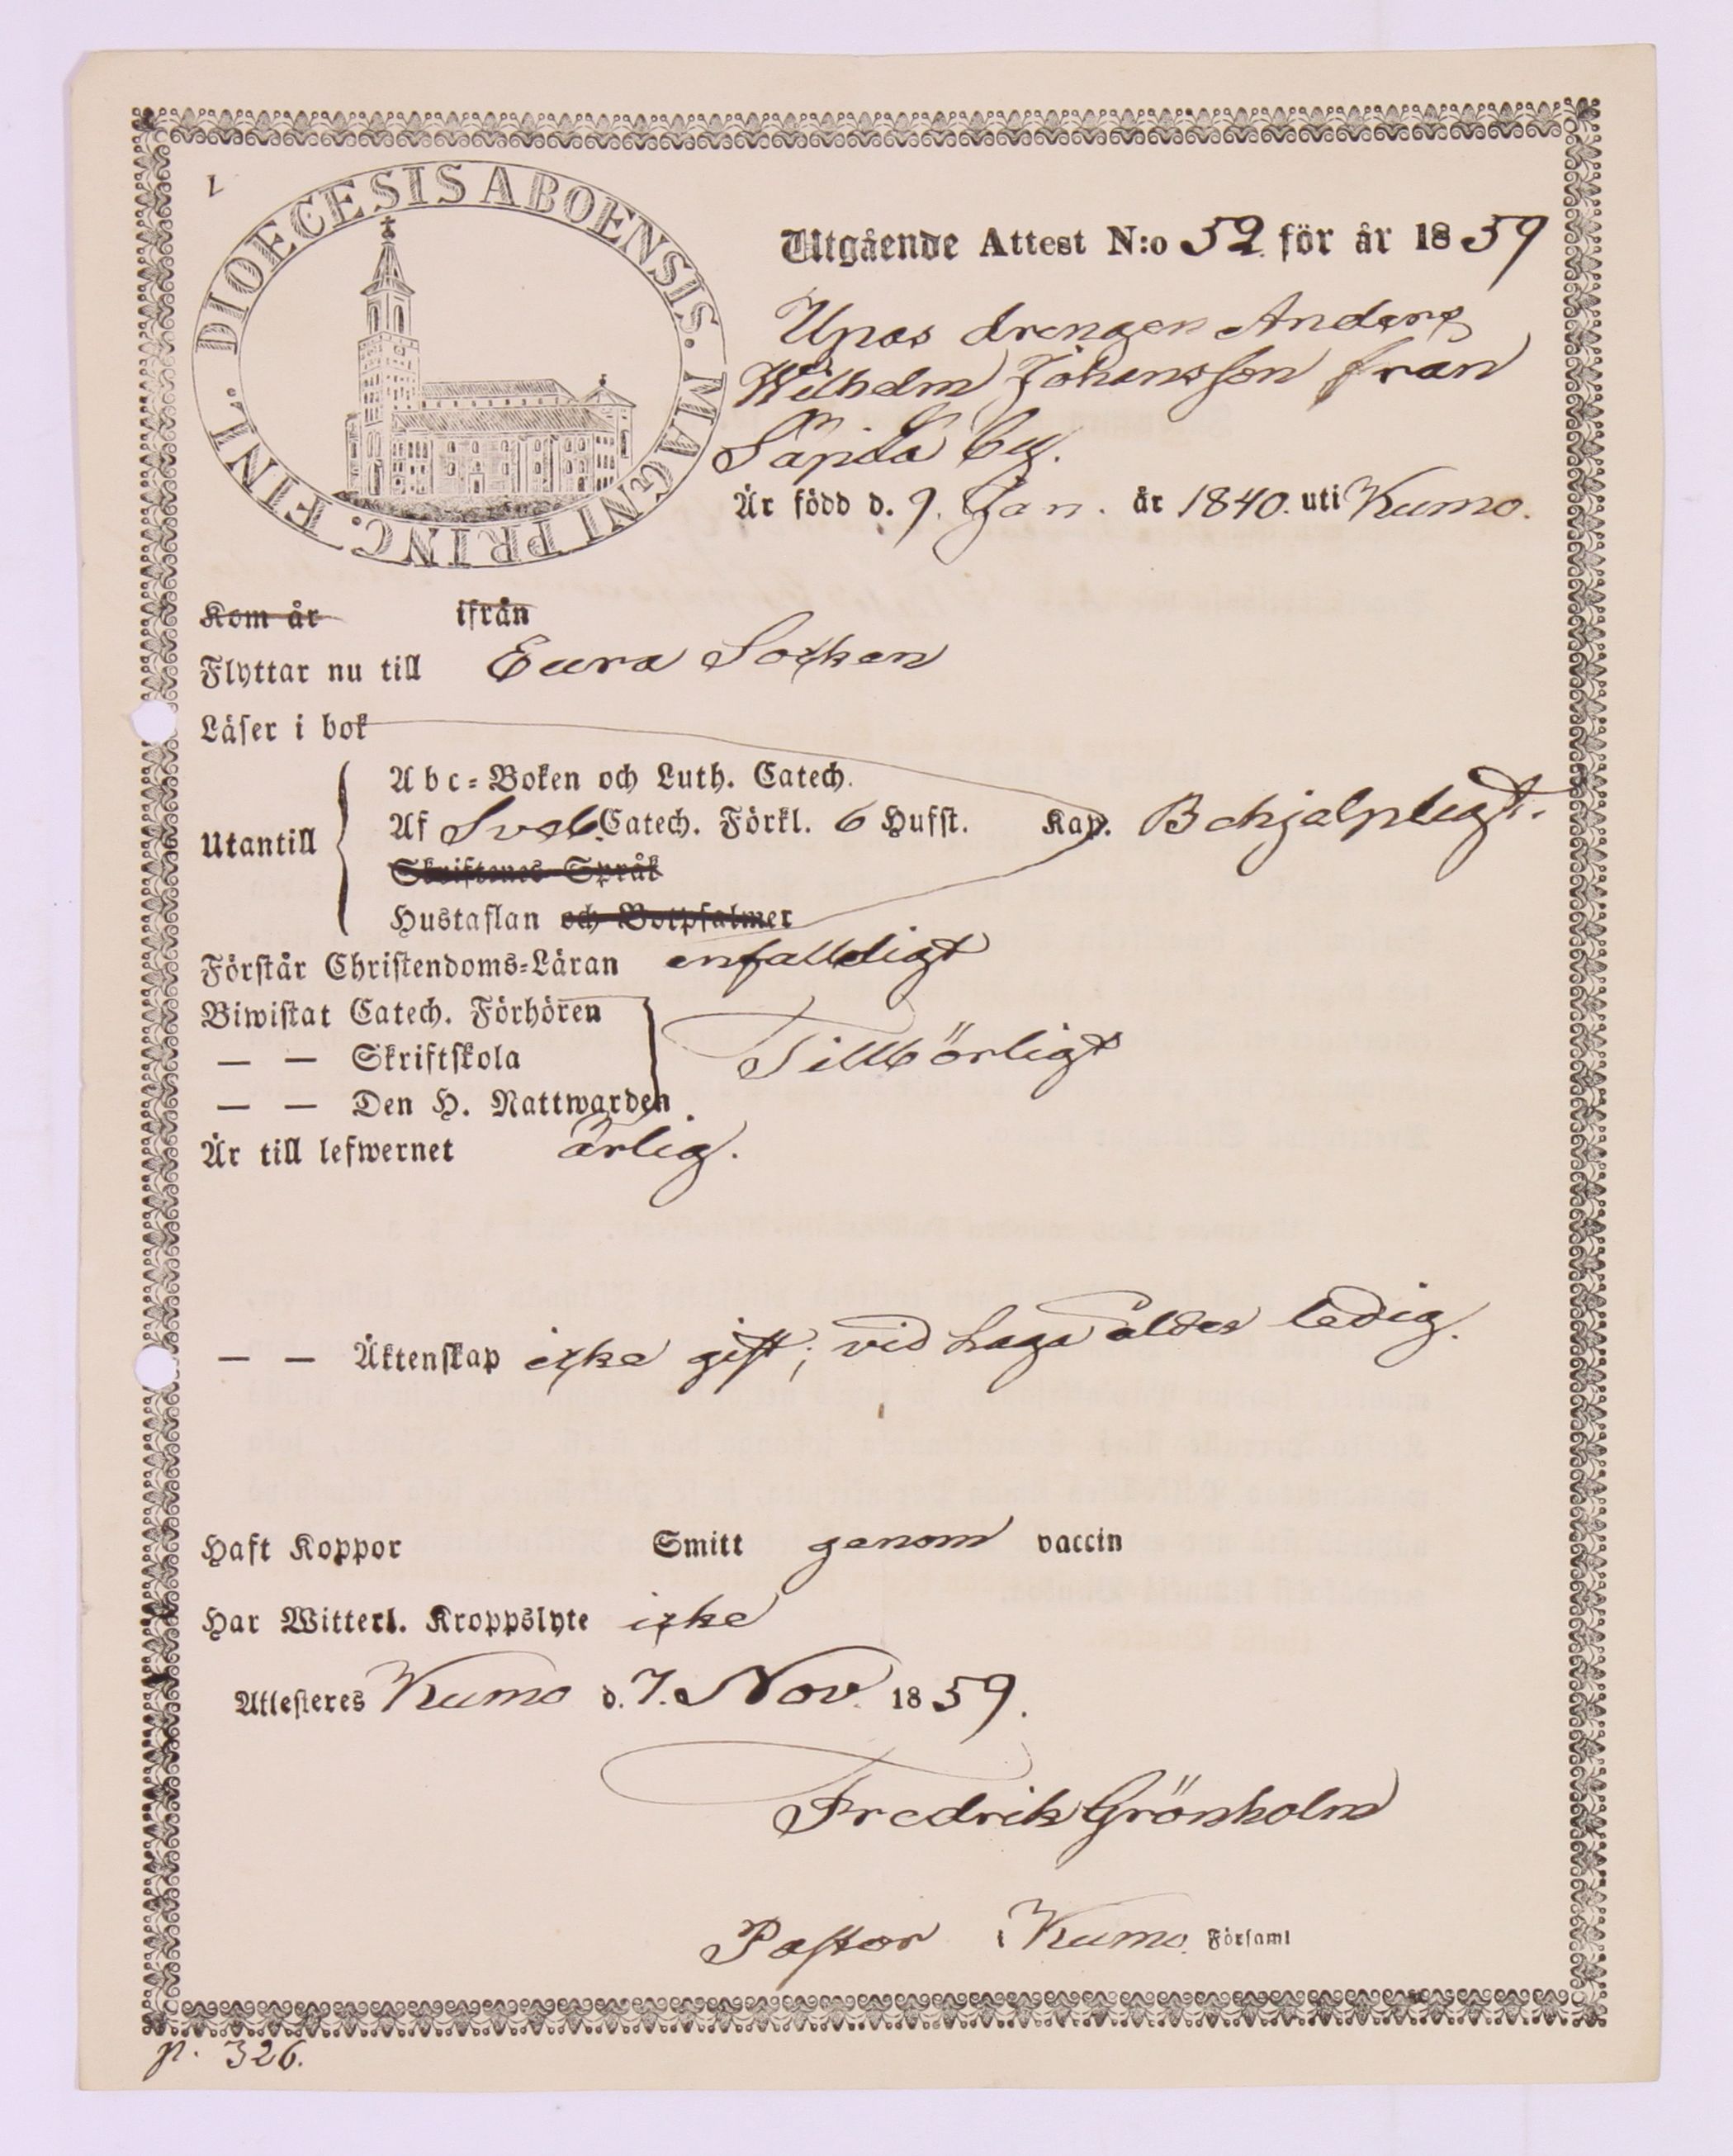 DIOECESIS ABOENSIS. MAGNI PRINC. FINL.
Utgående Attest N:o 52. för år 1859
Unos drengen Anders
Wilhelm Johansson från
Säpilä by.
Är född d. 9. Jan. år 1840. uti Kumo.
Kom år ifrån
Flyttar nu till Eura Socken
Läser i bok
Utantill
Abc-Boken och Luth. Catech.
Af Sveb. Catech. Förkl. 6 Hufst. Kap. Behjelpligt.
Skriftenes Språk
Hustaflan och Botpsalmer
Förstår Christendoms-Läran enfalldigt
Biwistat Catech. Förhören
— — Skriftskola Tillbörligt
— — Den H. Nattwarden
Är till lefwernet ärlig.
— — Äktenskap icke gift; vid laga ålder ledig.
Haft Koppor Smitt genom vaccin
Har Witterl. Kroppslyte icke
Attesteres Kumo d. 7. Nov. 1859.
Fredrik Grönholm
Pastor i Kumo Församl
p. 326.